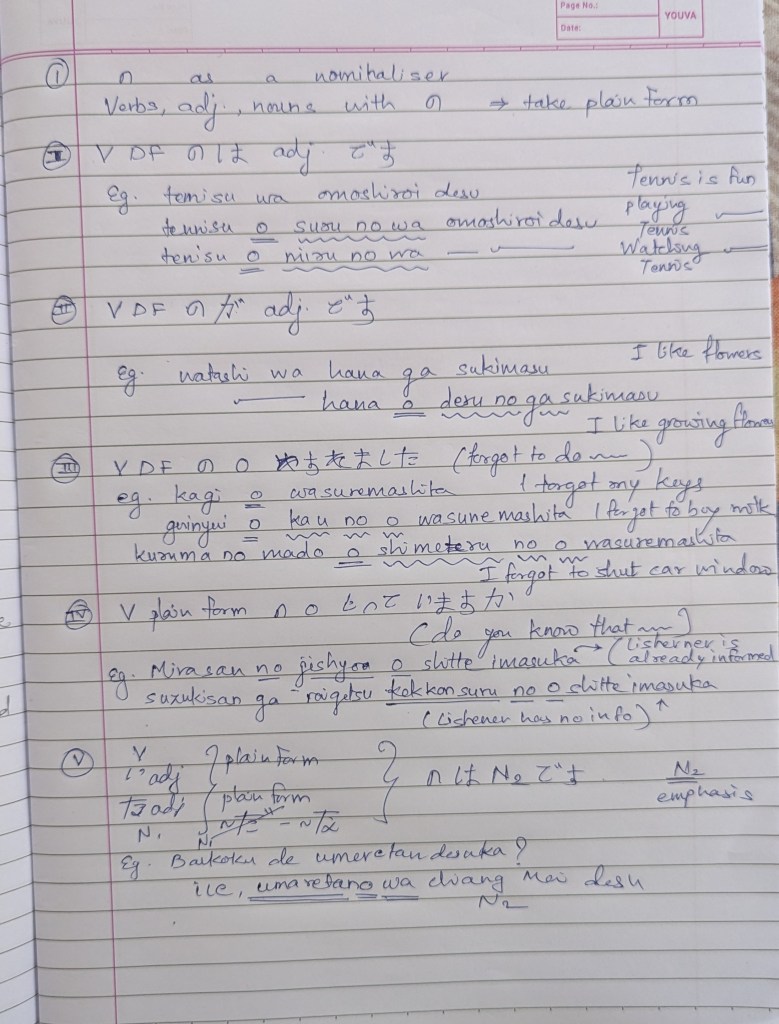 Page No.:
Date:
YOUVA
① の as a nominaliser
Verbs, adj., nouns with の ⇒ take plain form
Ⅱ V DF のは adj. です
Eg. temisu wa omoshiroi desu Tennis is fun
tennisu o suru no wa omoshiroi desu playing Tennis
tenisu o miru no wa — Watching Tennis
Ⅱ V DF のが adj. です
Eg. watashi wa hana ga sukimasu I like flowers
hana o deru no ga sukimasu
I like growing flowers
Ⅲ V DF のを わすれました (forgot to do ~)
eg. kagi o wasuremashita I forgot my keys
guinyui o kau no o wasuremashita I forgot to buy milk
kuruma no mado o shimeteru no o wasuremashita
I forgot to shut car window
Ⅳ V plain form のo しって いますか
(do you know that ~)
Eg. Mirasan no jishyoo o shitte imasuka → (Lisherner is already informed
suzukisan ga raigetsu kekkon suru no o shitte imasuka
(Lishener has no info) ↑
Ⅴ V } plain form
い adj
な adj } plain form
N₁ ~だ - ~な
} のは N₂ です. N₂ emphasis
Eg. Baikoku de umeretan desuka?
iie, umaretano wa chiang Mai desu
N₂